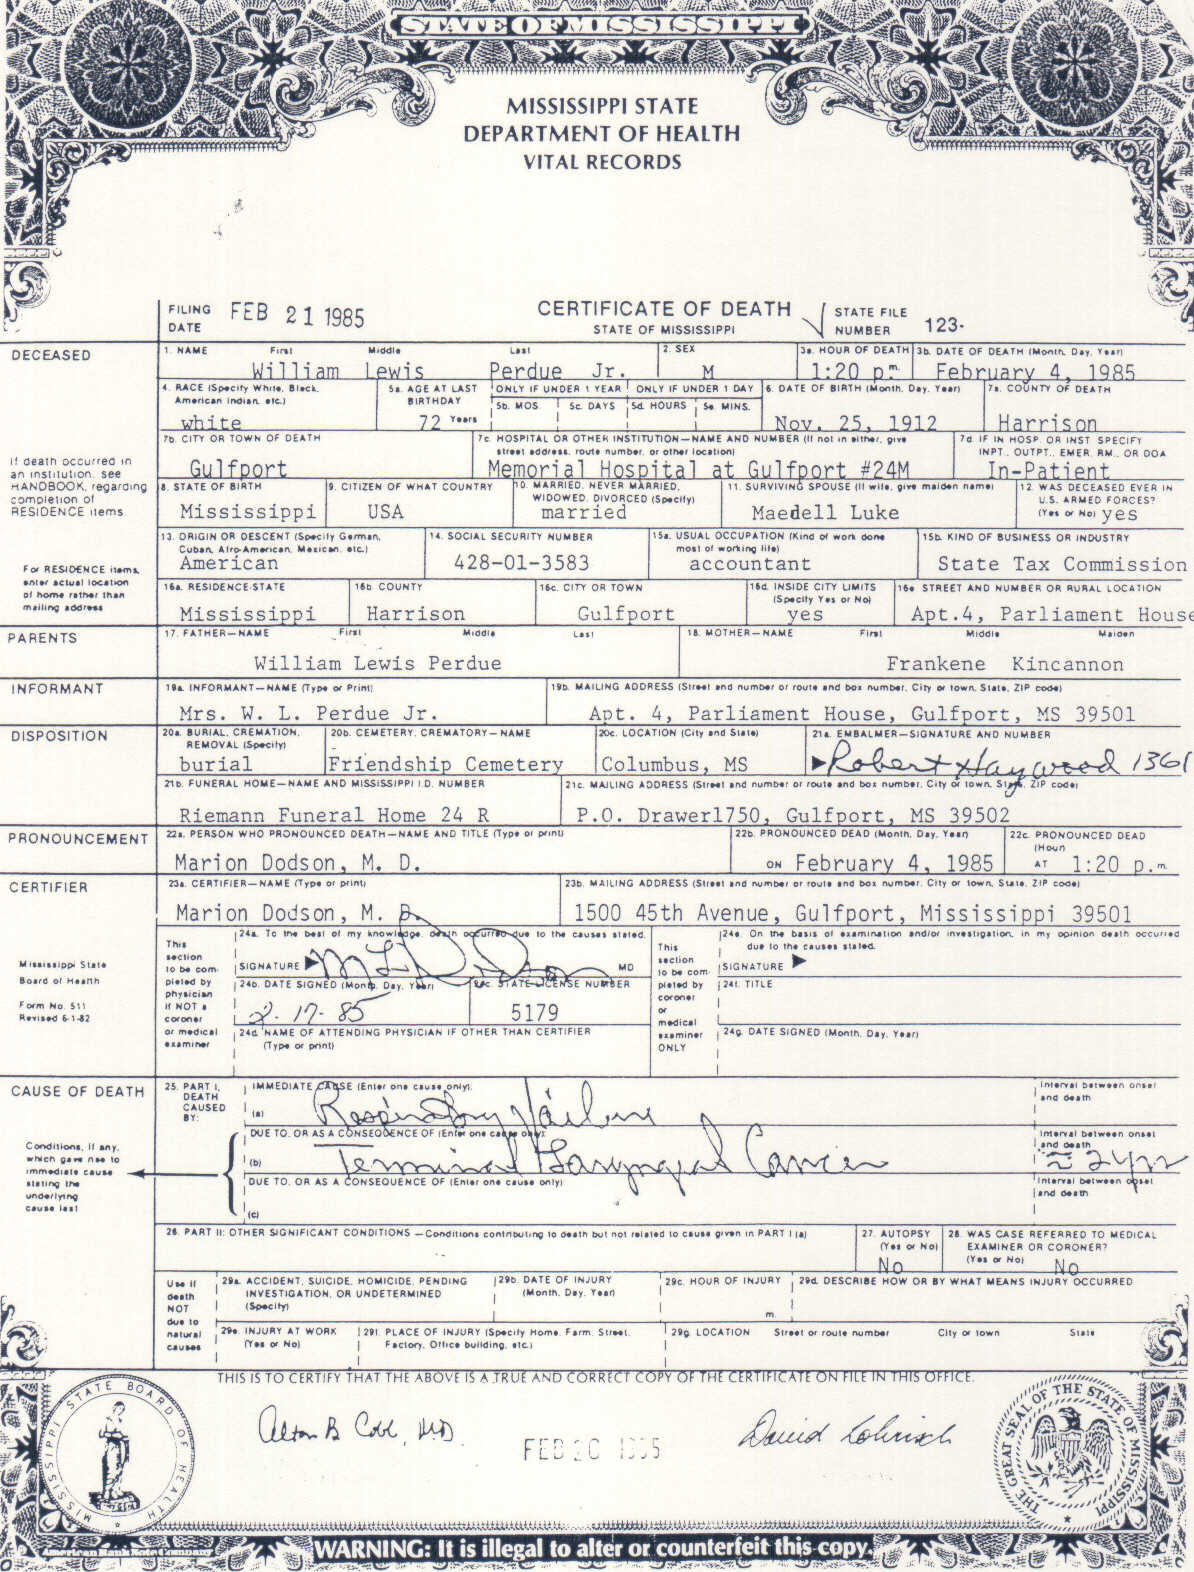 STATE OF MISSISSIPPI
MISSISSIPPI STATE
DEPARTMENT OF HEALTH
VITAL RECORDS
FILING DATE FEB 21 1985
CERTIFICATE OF DEATH
STATE OF MISSISSIPPI
STATE FILE NUMBER 123-
DECEASED
1. NAME First Middle Last
William Lewis Perdue Jr.
2. SEX
M
3a. HOUR OF DEATH
1:20 p.m.
3b. DATE OF DEATH (Month, Day, Year)
February 4, 1985
4. RACE (Specify White, Black, American Indian, etc.)
white
5a. AGE AT LAST BIRTHDAY
72 Years
ONLY IF UNDER 1 YEAR
5b. MOS. 5c. DAYS
ONLY IF UNDER 1 DAY
5d. HOURS 5e. MINS.
6. DATE OF BIRTH (Month, Day, Year)
Nov. 25, 1912
7a. COUNTY OF DEATH
Harrison
7b. CITY OR TOWN OF DEATH
Gulfport
7c. HOSPITAL OR OTHER INSTITUTION—NAME AND NUMBER (If not in either, give street address, route number, or other location)
Memorial Hospital at Gulfport #24M
7d. IF IN HOSP. OR INST. SPECIFY INPT., OUTPT., EMER. RM., OR DOA
In-Patient
If death occurred in an institution, see HANDBOOK, regarding completion of RESIDENCE items.
8. STATE OF BIRTH
Mississippi
9. CITIZEN OF WHAT COUNTRY
USA
10. MARRIED, NEVER MARRIED, WIDOWED, DIVORCED (Specify)
married
11. SURVIVING SPOUSE (If wife, give maiden name)
Maedell Luke
12. WAS DECEASED EVER IN U.S. ARMED FORCES? (Yes or No) yes
13. ORIGIN OR DESCENT (Specify German, Cuban, Afro-American, Mexican, etc.)
American
14. SOCIAL SECURITY NUMBER
428-01-3583
15a. USUAL OCCUPATION (Kind of work done most of working life)
accountant
15b. KIND OF BUSINESS OR INDUSTRY
State Tax Commission
For RESIDENCE items, enter actual location of home rather than mailing address
16a. RESIDENCE-STATE
Mississippi
16b COUNTY
Harrison
16c. CITY OR TOWN
Gulfport
16d. INSIDE CITY LIMITS (Specify Yes or No)
yes
16e STREET AND NUMBER OR RURAL LOCATION
Apt.4, Parliament House
PARENTS
17. FATHER—NAME First Middle Last
William Lewis Perdue
18. MOTHER—NAME First Middle Maiden
Frankene Kincannon
INFORMANT
19a. INFORMANT—NAME (Type or Print)
Mrs. W. L. Perdue Jr.
19b. MAILING ADDRESS (Street and number or route and box number, City or town, State, ZIP code)
Apt. 4, Parliament House, Gulfport, MS 39501
DISPOSITION
20a. BURIAL, CREMATION, REMOVAL (Specify)
burial
20b. CEMETERY, CREMATORY—NAME
Friendship Cemetery
20c. LOCATION (City and State)
Columbus, MS
21a. EMBALMER—SIGNATURE AND NUMBER
Robert Haywood 1361
21b. FUNERAL HOME—NAME AND MISSISSIPPI I.D. NUMBER
Riemann Funeral Home 24 R
21c. MAILING ADDRESS (Street and number or route and box number, City or town, State, ZIP code)
P.O. Drawer1750, Gulfport, MS 39502
PRONOUNCEMENT
22a. PERSON WHO PRONOUNCED DEATH—NAME AND TITLE (Type or print)
Marion Dodson, M. D.
22b. PRONOUNCED DEAD (Month, Day, Year)
ON February 4, 1985
22c. PRONOUNCED DEAD (Hour)
AT 1:20 p.m.
CERTIFIER
23a. CERTIFIER—NAME (Type or print)
Marion Dodson, M. D.
23b. MAILING ADDRESS (Street and number or route and box number, City or town, State, ZIP code)
1500 45th Avenue, Gulfport, Mississippi 39501
Mississippi State Board of Health
Form No. 511
Revised 6-1-82
This section to be completed by physician if NOT a coroner or medical examiner
24a. To the best of my knowledge, death occurred due to the causes stated.
SIGNATURE MD
24b. DATE SIGNED (Month, Day, Year)
2-17-85
24c. STATE LICENSE NUMBER
5179
24d. NAME OF ATTENDING PHYSICIAN IF OTHER THAN CERTIFIER (Type or print)
This section to be completed by coroner or medical examiner ONLY
24e. On the basis of examination and/or investigation, in my opinion death occurred due to the causes stated.
SIGNATURE
24f. TITLE
24g. DATE SIGNED (Month, Day, Year)
CAUSE OF DEATH
25. PART I. DEATH CAUSED BY:
IMMEDIATE CAUSE (Enter one cause only):
(a) Respiratory Failure
Interval between onset and death
DUE TO, OR AS A CONSEQUENCE OF (Enter one cause only):
(b) Terminal Laryngeal Cancer
Interval between onset and death
≈ 2 yrs
DUE TO, OR AS A CONSEQUENCE OF (Enter one cause only)
(c)
Interval between onset and death
Conditions, if any, which gave rise to immediate cause stating the underlying cause last
26. PART II: OTHER SIGNIFICANT CONDITIONS—Conditions contributing to death but not related to cause given in PART I (a)
27. AUTOPSY (Yes or No)
No
28. WAS CASE REFERRED TO MEDICAL EXAMINER OR CORONER? (Yes or No)
No
Use if death NOT due to natural causes
29a. ACCIDENT, SUICIDE, HOMICIDE, PENDING INVESTIGATION, OR UNDETERMINED (Specify)
29b. DATE OF INJURY (Month, Day, Year)
29c. HOUR OF INJURY
m.
29d. DESCRIBE HOW OR BY WHAT MEANS INJURY OCCURRED
29e. INJURY AT WORK (Yes or No)
29f. PLACE OF INJURY (Specify Home, Farm, Street, Factory, Office building, etc.)
29g. LOCATION Street or route number City or town State
THIS IS TO CERTIFY THAT THE ABOVE IS A TRUE AND CORRECT COPY OF THE CERTIFICATE ON FILE IN THIS OFFICE.
MISSISSIPPI STATE BOARD OF HEALTH
Alton B Cobb, MD
FEB 20
David Lohrisch
THE GREAT SEAL OF THE STATE OF MISSISSIPPI
American Bank Note Company
WARNING: It is illegal to alter or counterfeit this copy.